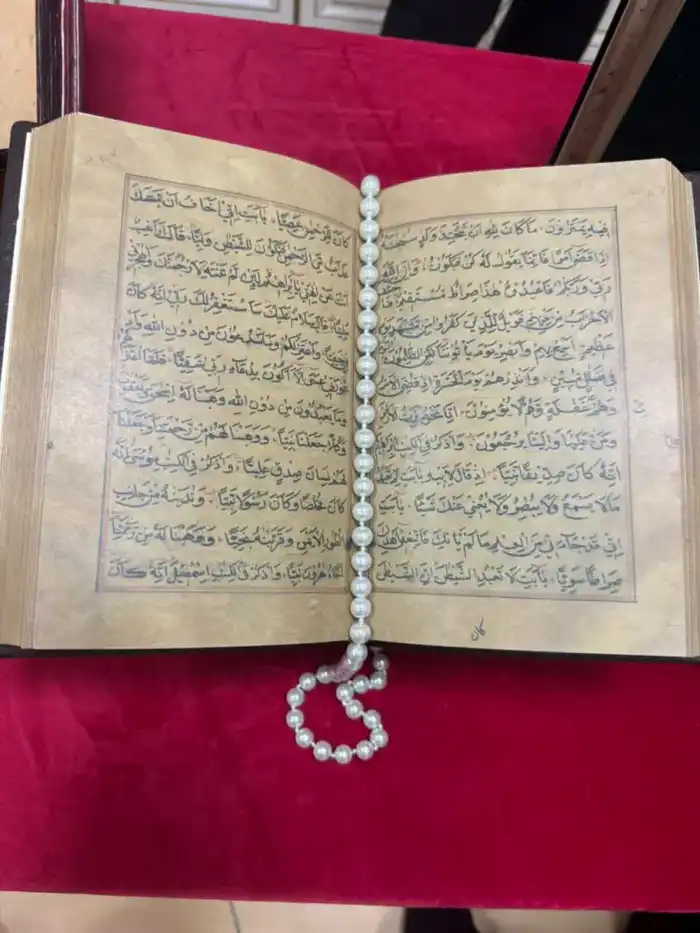 فِيهِ يَمْتَرُونَ مَا كَانَ لِلّٰهِ اَنْ يَتَّخِذَ مِنْ وَلَدٍ سُبْحٰنَهُ
اِذَا قَضٰى اَمْرًا فَاِنَّمَا يَقُولُ لَهُ كُنْ فَيَكُونُ وَاِنَّ اللّٰهَ
رَبِّي وَرَبُّكُمْ فَاعْبُدُوهُ هٰذَا صِرَاطٌ مُسْتَقِيمٌ
الْاَحْزَابُ مِنْ بَيْنِهِمْ فَوَيْلٌ لِلَّذِينَ كَفَرُوا مِنْ مَشْهَدِ يَوْمٍ
عَظِيمٍ اَسْمِعْ بِهِمْ وَاَبْصِرْ يَوْمَ يَأْتُونَنَا لٰكِنِ الظّٰلِمُونَ
فِي ضَلٰلٍ مُبِينٍ وَاَنْذِرْهُمْ يَوْمَ الْحَسْرَةِ اِذْ قُضِيَ الْاَمْرُ
وَهُمْ فِي غَفْلَةٍ وَهُمْ لَا يُؤْمِنُونَ اِنَّا نَحْنُ نَرِثُ
وَمَنْ عَلَيْهَا وَاِلَيْنَا يُرْجَعُونَ وَاذْكُرْ فِي الْكِتٰبِ اِبْرٰهِيمَ
اِنَّهُ كَانَ صِدِّيقًا نَبِيًّا اِذْ قَالَ لِاَبِيهِ يَاَبَتِ لِمَ تَعْبُدُ
مَا لَا يَسْمَعُ وَلَا يُبْصِرُ وَلَا يُغْنِي عَنْكَ شَيْئًا يَاَبَتِ
اِنِّي قَدْ جَاءَنِي مِنَ الْعِلْمِ مَا لَمْ يَأْتِكَ فَاتَّبِعْنِي اَهْدِكَ
صِرَاطًا سَوِيًّا يَاَبَتِ لَا تَعْبُدِ الشَّيْطٰنَ اِنَّ الشَّيْطٰنَ
كان
كَانَ لِلرَّحْمٰنِ عَصِيًّا يَاَبَتِ اِنِّي اَخَافُ اَنْ يَمَسَّكَ
عَذَابٌ مِنَ الرَّحْمٰنِ فَتَكُونَ لِلشَّيْطٰنِ وَلِيًّا قَالَ اَرَاغِبٌ
اَنْتَ عَنْ اٰلِهَتِي يَا اِبْرٰهِيمُ لَئِنْ لَمْ تَنْتَهِ لَاَرْجُمَنَّكَ وَاهْجُرْنِي
مَلِيًّا قَالَ سَلَامٌ عَلَيْكَ سَاَسْتَغْفِرُ لَكَ رَبِّي اِنَّهُ كَانَ
بِي حَفِيًّا وَاَعْتَزِلُكُمْ وَمَا تَدْعُونَ مِنْ دُونِ اللّٰهِ وَاَدْعُو
رَبِّي عَسٰى اَلَّا اَكُونَ بِدُعَاءِ رَبِّي شَقِيًّا فَلَمَّا اعْتَزَلَهُمْ
وَمَا يَعْبُدُونَ مِنْ دُونِ اللّٰهِ وَهَبْنَا لَهُ اِسْحٰقَ وَيَعْقُوبَ
وَكُلًّا جَعَلْنَا نَبِيًّا وَوَهَبْنَا لَهُمْ مِنْ رَحْمَتِنَا وَجَعَلْنَا
لَهُمْ لِسَانَ صِدْقٍ عَلِيًّا وَاذْكُرْ فِي الْكِتٰبِ مُوسٰى اِنَّهُ
كَانَ مُخْلَصًا وَكَانَ رَسُولًا نَبِيًّا وَنٰدَيْنٰهُ مِنْ جَانِبِ
الطُّورِ الْاَيْمَنِ وَقَرَّبْنٰهُ نَجِيًّا وَوَهَبْنَا لَهُ مِنْ رَحْمَتِنَا
اَخَاهُ هٰرُونَ نَبِيًّا وَاذْكُرْ فِي الْكِتٰبِ اِسْمٰعِيلَ اِنَّهُ كَانَ